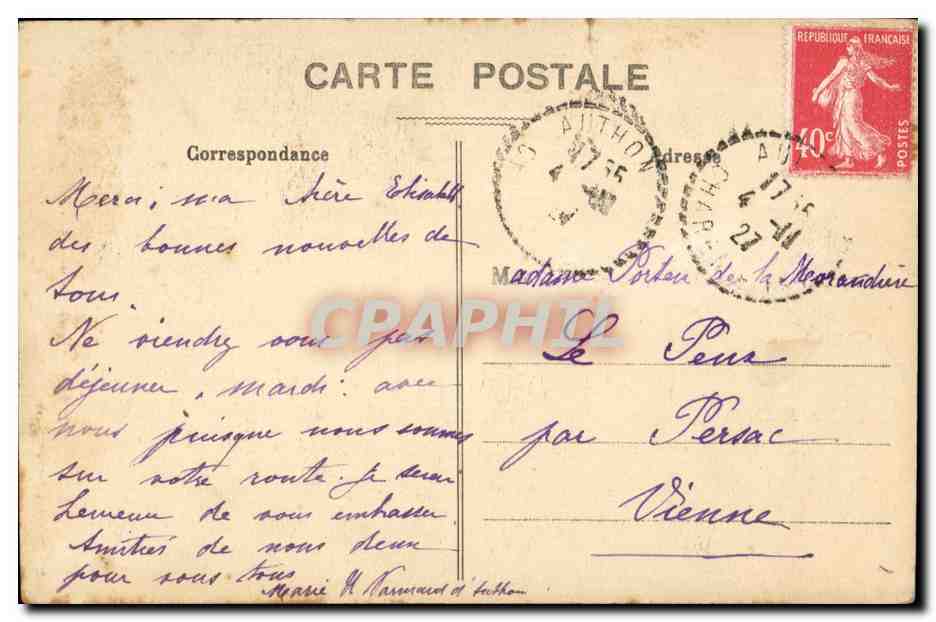 CARTE POSTALE
REPUBLIQUE FRANÇAISE
40c
POSTES
AUTHON
17 55
4
AUT
17 55
4 -11
27
CHAR
Correspondance
Adresse
Merci, ma chère Elisabeth
des bonnes nouvelles de
tous.
Ne viendrez vous pas
déjeuner, mardi avec
nous puisque nous sommes
sur votre route. Je serai
heureux de vous embrasser
Amitiés de nous deux
pour vous tous
Marie d'Authon
Madame Porteu de la Morandière
Le Peux
par Persac
Vienne
CPAPHIL